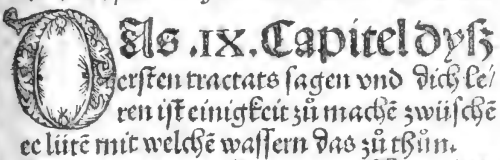 DAs .IX. Capitel dyſz
erſten tractats ſagen vnd dich le/
ren iſt einigkeit zů machē zwüſchē
ee lütē mit welchē waſſern das zů thůn.